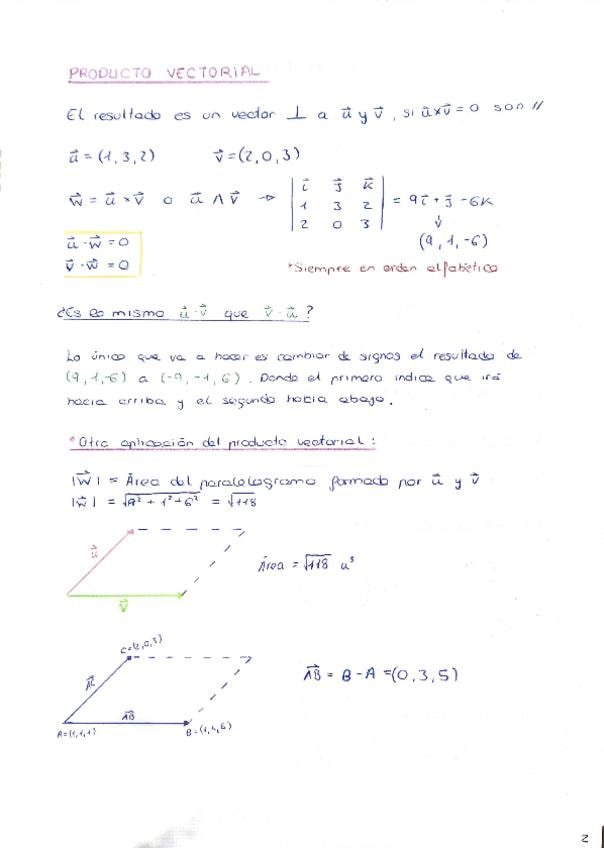 PRODUCTO VECTORIAL
El resultado es un vector ⊥ a u⃗ y v⃗, si u⃗×v⃗ = 0 son //
u⃗ = (1, 3, 2) v⃗ = (2, 0, 3)
w⃗ = u⃗ × v⃗ o u⃗ ∧ v⃗ → | i⃗ j⃗ k⃗ | = 9i⃗ + j⃗ - 6k
| 1 3 2 | ↓
| 2 0 3 | (9, 1, -6)
u⃗ · w⃗ = 0
v⃗ · w⃗ = 0
*Siempre en orden alfabético
¿Es lo mismo u⃗ · v⃗ que v⃗ · u⃗?
Lo único que va a hacer es cambiar de signos el resultado de
(9, 1, -6) a (-9, -1, 6). Donde el primero indica que irá
hacia arriba y el segundo hacia abajo.
*Otra aplicación del producto vectorial:
|w⃗| = Área del paralelogramo formado por u⃗ y v⃗
|w⃗| = √9² + 1² + 6² = √118
u⃗
v⃗
Área = √118 u³
C=(2,0,3)
AC⃗
AB⃗
A=(1,1,1)
AB⃗ = B - A = (0, 3, 5)
2